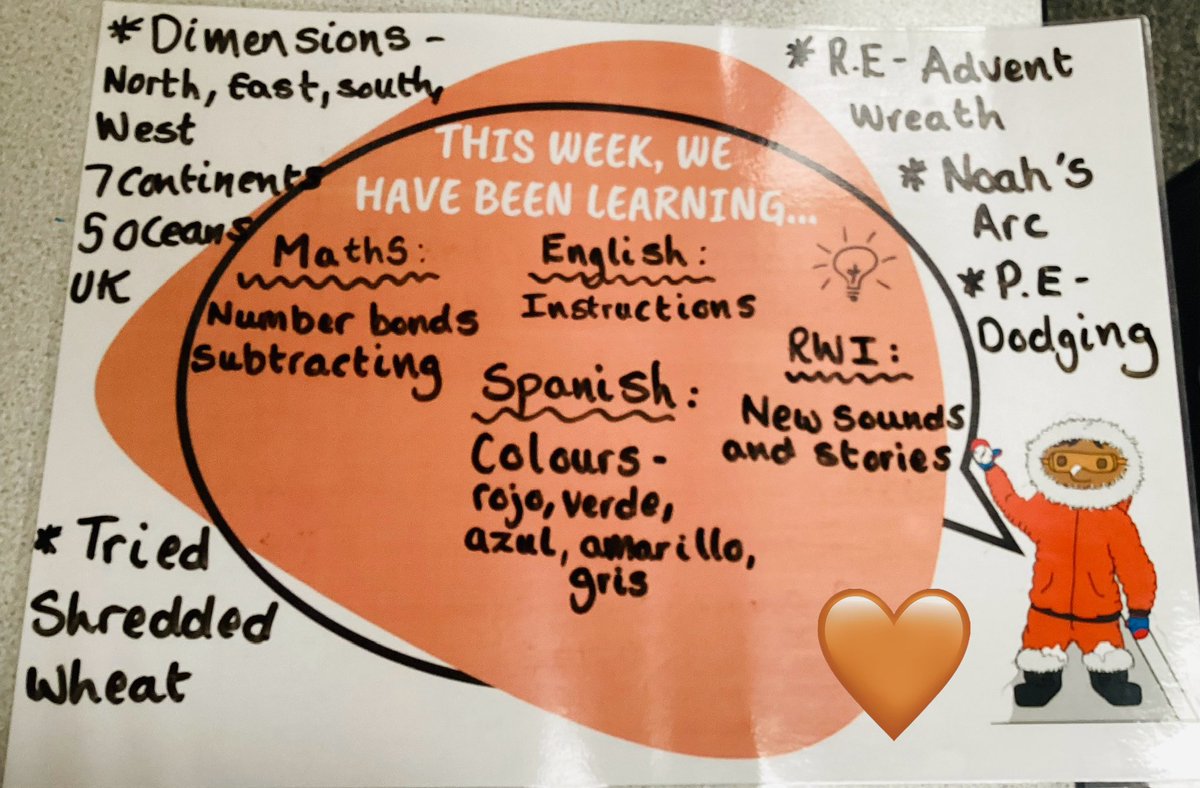 * Dimensions -
North, East, south,
West
7 continents
5 oceans
UK
THIS WEEK, WE
HAVE BEEN LEARNING...
Maths:
Number bonds
Subtracting
English:
Instructions
Spanish:
Colours -
rojo, verde,
azul, amarillo,
gris
RWI:
New sounds
and stories
* R.E - Advent
Wreath
* Noah's
Arc
* P.E -
Dodging
* Tried
Shredded
Wheat